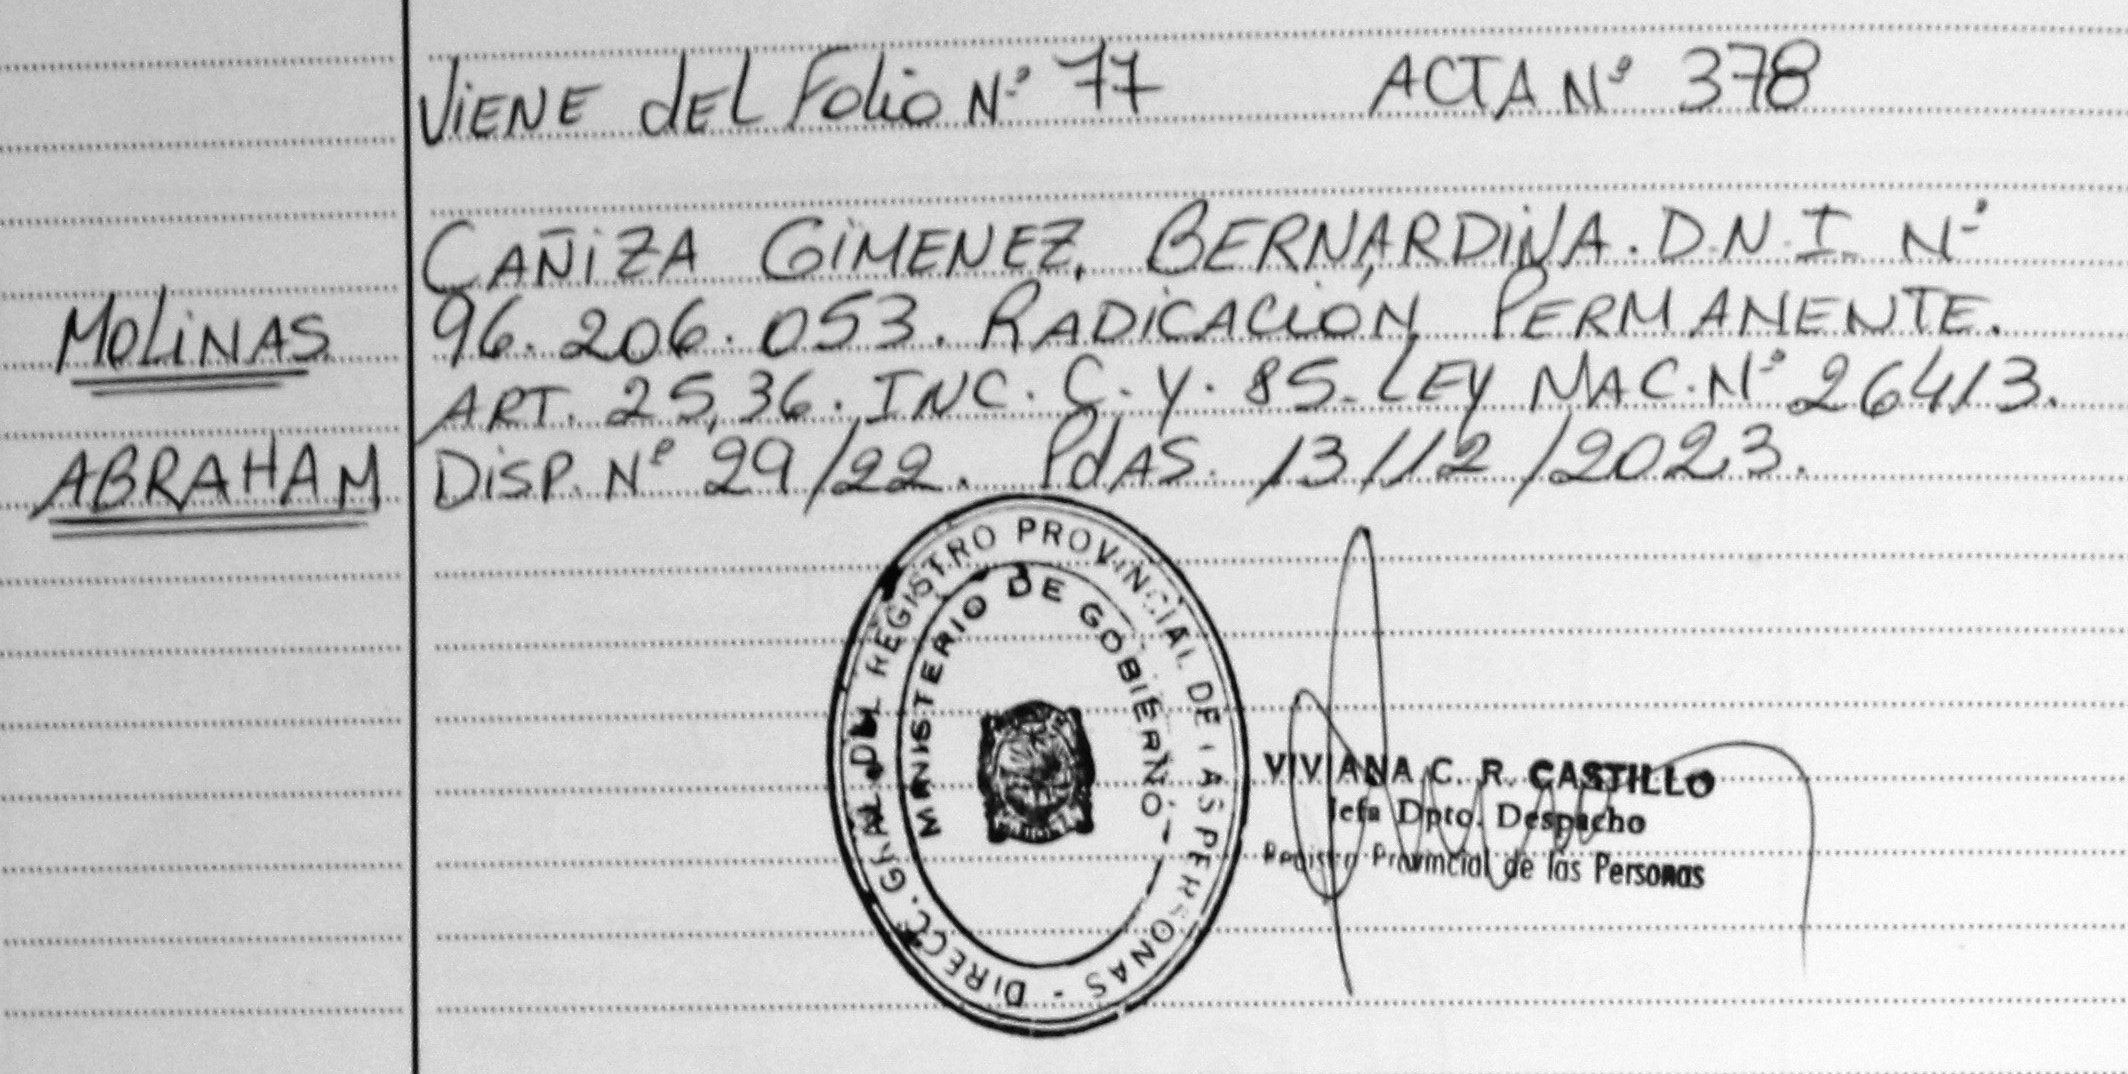 ViENE dEL Folio N° 77 ACTA N° 378
MOLiNAS
ABRAHAM
CAÑiZA GiMENEZ, BERNARDiNA. D.N.I. N°
96.206.053. RADiCACiÓN PERMANENTE.
ART. 25,36. INC. C. Y. 85. LEY NAC. N° 26413.
DiSP. N° 29/22. PdAS. 13/12/2023.
DIRECC. GRAL. DEL REGISTRO PROVINCIAL DE LAS PERSONAS -
MINISTERIO DE GOBIERNO
VIVIANA C. R. CASTILLO
Jefa Dpto. Despacho
Registro Provincial de las Personas